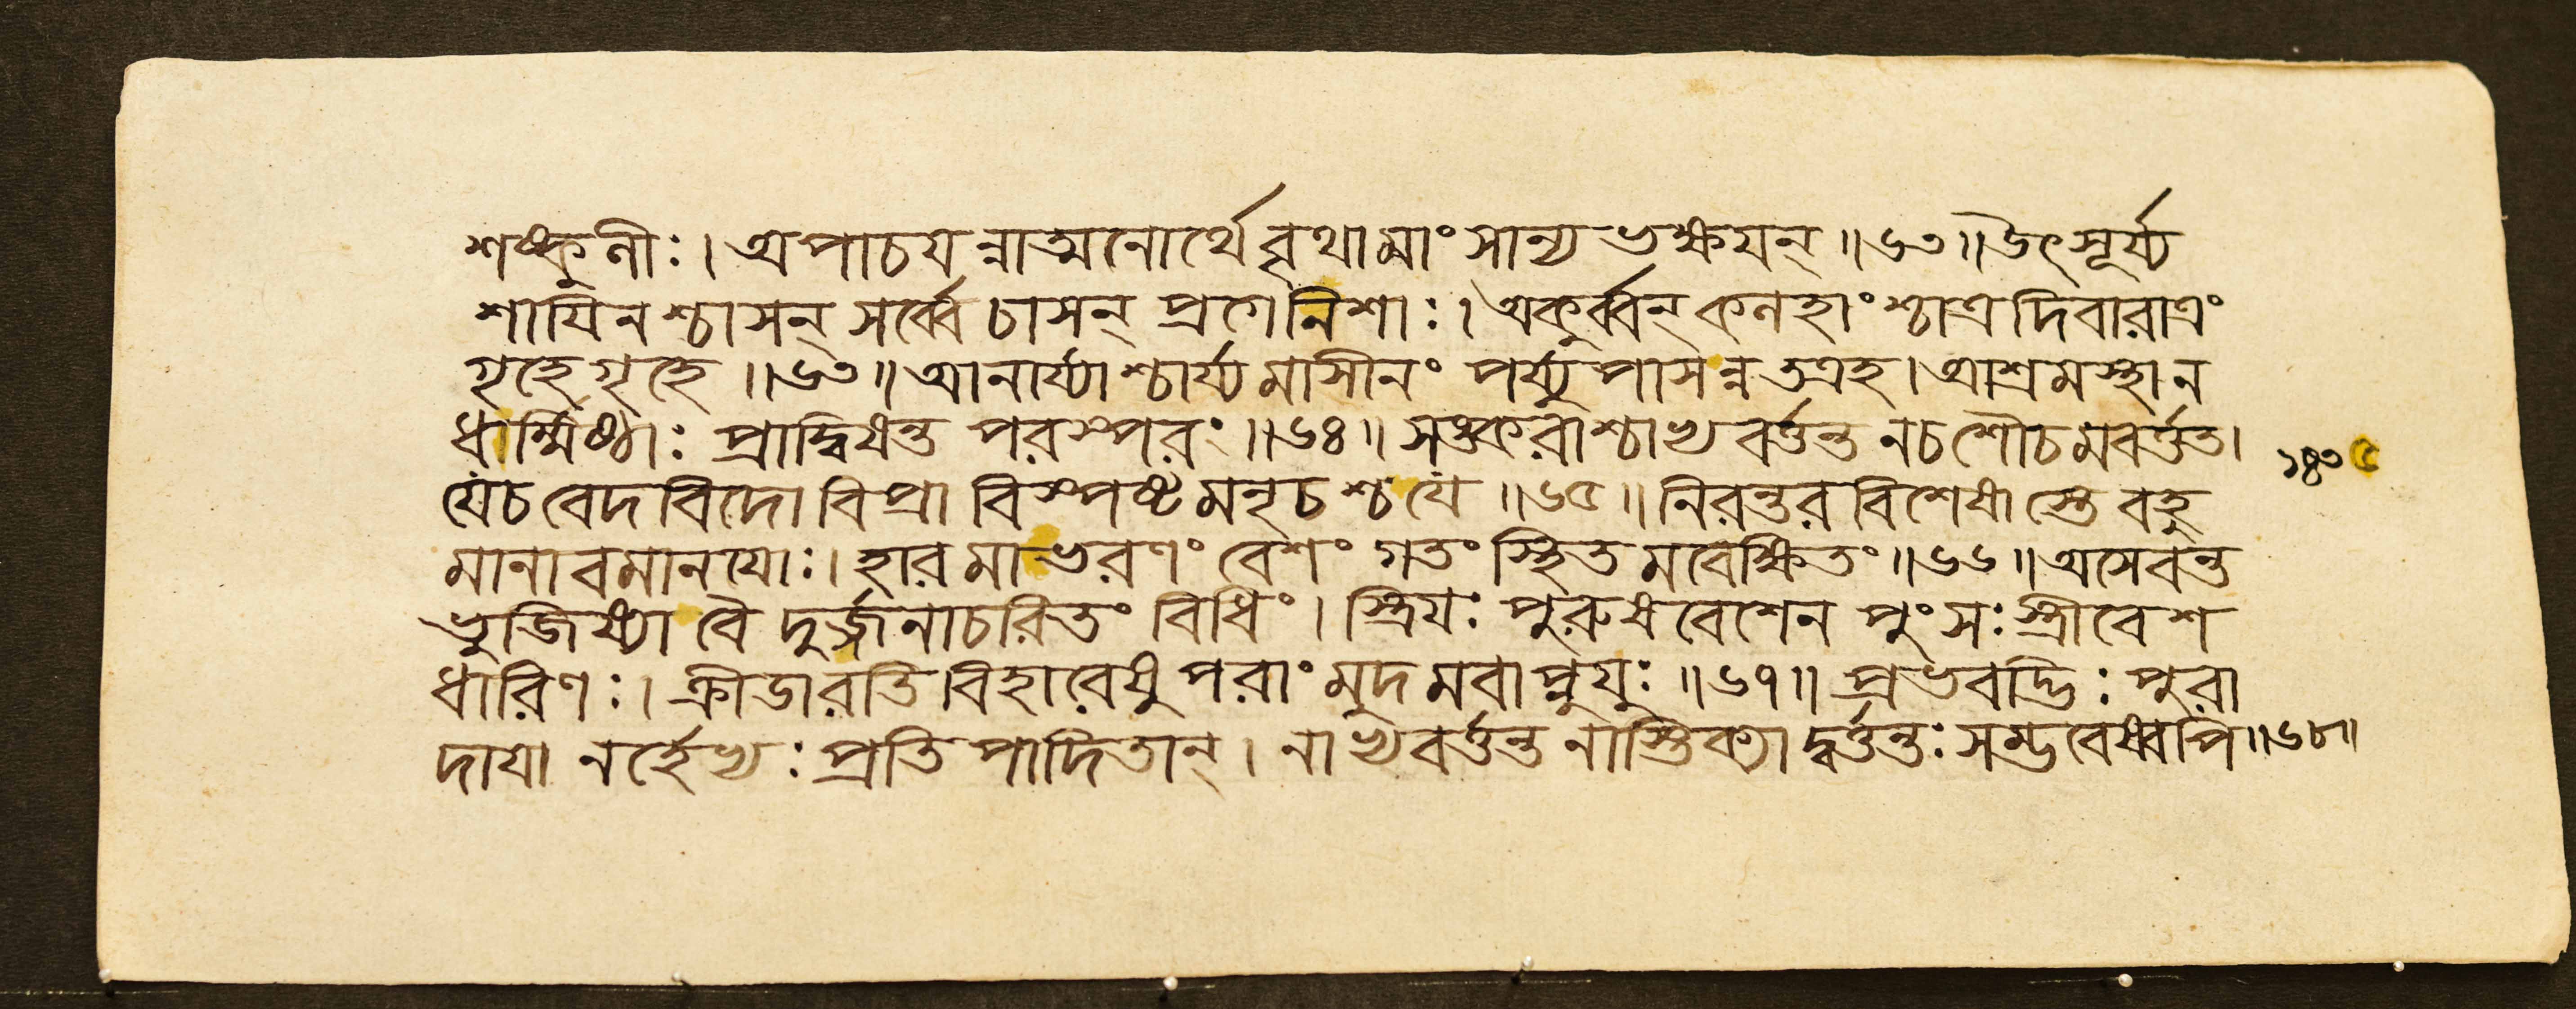 শষ্কুলীঃ। অপাচযন্নাত্মনোর্থেবৃথামাংসান্যভক্ষযন্॥৬৩॥উৎসূর্য্য
শাযিনশ্চাসন্ সর্ব্বেচাসন্ প্রগেনিশাঃ।অকুর্ব্বন্ কলহাংশ্চাত্রদিবারাত্রং
গৃহেগৃহে॥৬৩॥আনার্য্যাশ্চার্য্যমাসীনং পর্য্যুপাসন্নতত্রহ।আশ্রমস্থান
ধার্ম্মিষ্ঠাঃ প্রাদ্বিষন্ত পরস্পরং॥৬৪॥ সঙ্করাশ্চাভ্যবর্ত্তন্ত নচশৌচমবর্ত্তত।
যেচবেদবিদোবিপ্রা বিস্পষ্টমনৃচশ্চযে॥৬৫॥নিরন্তরবিশেষাস্তেবহু
মানাবমানযোঃ।হারমাভরণং বেশং গতং স্থিতমবেক্ষিতং॥৬৬॥অসেবন্ত
ভুজিষ্যা বৈ দুর্জ্জনাচরিতং বিধিং। স্ত্রিযঃ পুরুষবেশেন পুংসঃস্ত্রীবেশ
ধারিণঃ।ক্রীডারতিবিহারেষুপরাংমুদমবাপ্নুযুঃ॥৬৭॥প্রভবদ্ভিঃপুরা
দাযা নর্হেভ্যঃপ্রতিপাদিতান্। নাভ্যবর্ত্তন্তনাস্তিক্যাদ্বর্ত্তন্তঃসম্ভবেষ্বপি॥৬৮॥
১৪৩